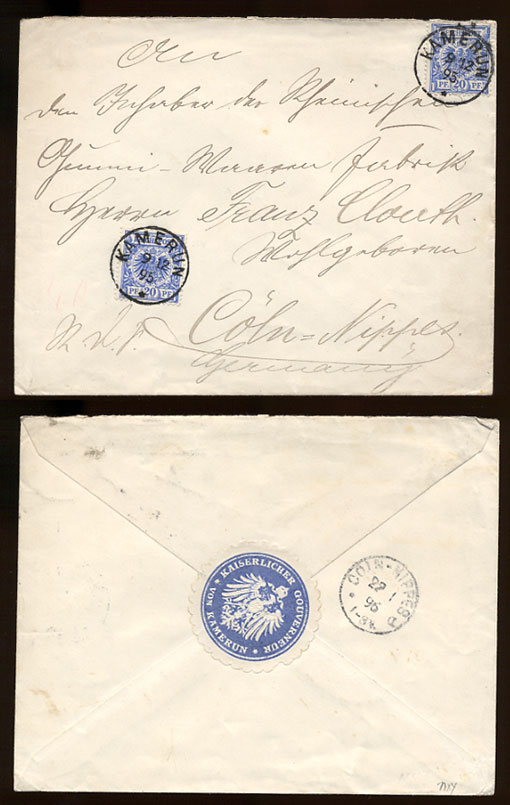 An
KAMERUN
9 12
95
PF 20 PF
den Inhaber der Rheinischen
Gummi-Waaren Fabrik
Herrn Franz Clouth.
Wohlgeboren
KAMERUN
9 12
95
PF 20 PF
Cöln=Nippes.
Germany
KAISERLICHER GOUVERNEUR
VON KAMERUN
CÖLN-NIPPES
22 1
96